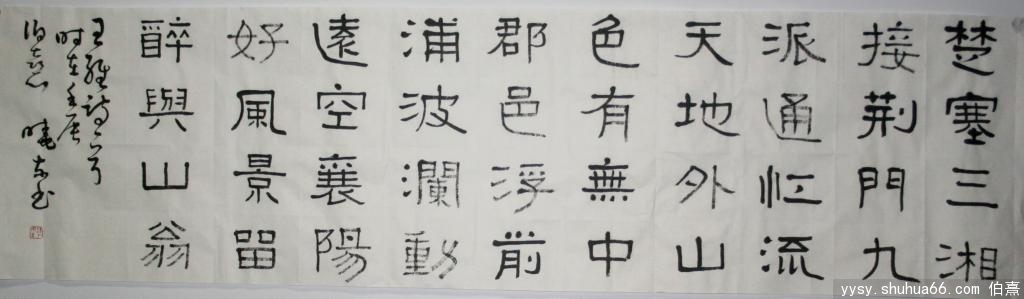 楚塞三湘
接荆門九
派通江流
天地外山
色有無中
郡邑浮前
浦波瀾動
遠空襄陽
好風景留
醉與山翁
王維詩一首
时在壬辰
yysy.shuhua66.com 伯熹